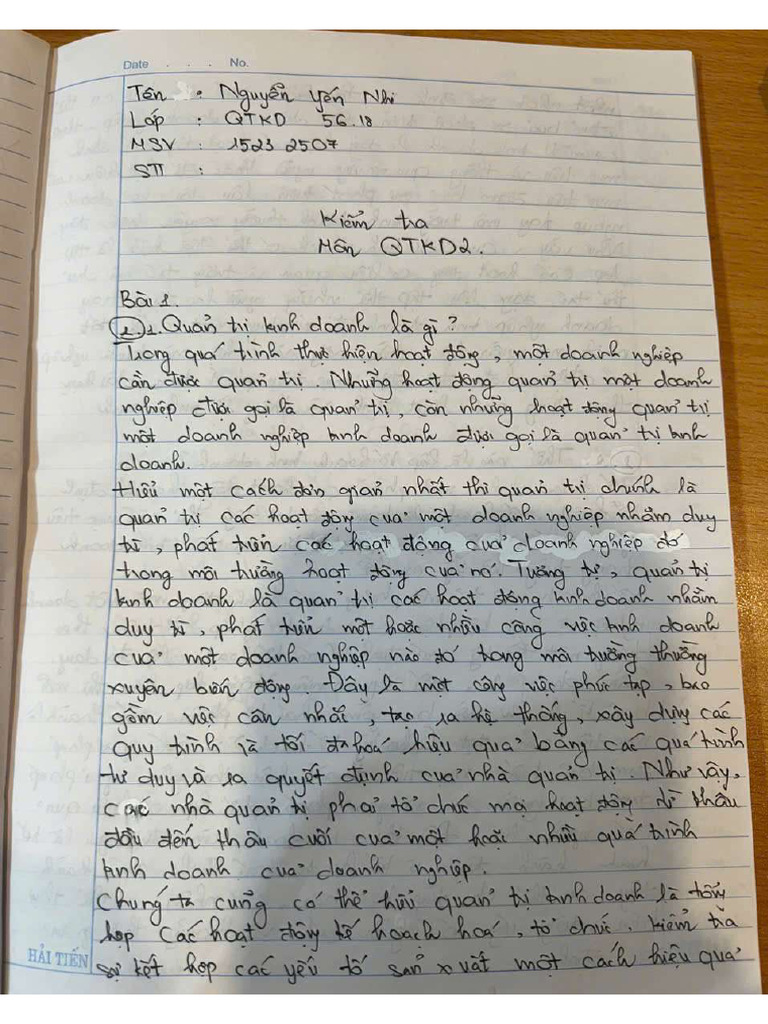 Date . . . No.
Tên : Nguyễn Yến Nhi
Lớp : QTKD 56.18
MSV : 1523 2507
STT :
Kiểm tra
Môn QTKD2.
Bài 1.
1.1. Quản trị kinh doanh là gì?
Trong quá trình thực hiện hoạt động, một doanh nghiệp
cần được quản trị. Những hoạt động quản trị một doanh
nghiệp được gọi là quản trị, còn những hoạt động quản trị
một doanh nghiệp kinh doanh được gọi là quản trị kinh
doanh.
Hiểu một cách đơn giản nhất thì quản trị chính là
quản trị các hoạt động của một doanh nghiệp nhằm duy
trì, phát triển các hoạt động của doanh nghiệp đó
trong môi trường hoạt động của nó. Tương tự, quản trị
kinh doanh là quản trị các hoạt động kinh doanh nhằm
duy trì, phát triển một hoặc nhiều công việc kinh doanh
của một doanh nghiệp nào đó trong môi trường thường
xuyên biến động. Đây là một công việc phức tạp, bao
gồm việc cân nhắc, tạo ra hệ thống, xây dựng các
quy trình và tối đa hoá hiệu quả bằng các quá trình
tư duy và ra quyết định của nhà quản trị. Như vậy,
các nhà quản trị phải tổ chức mọi hoạt động từ khâu
đầu đến khâu cuối của một hoặc nhiều quá trình
kinh doanh của doanh nghiệp.
Chúng ta cũng có thể hiểu quản trị kinh doanh là tổng
hợp các hoạt động kế hoạch hoá, tổ chức, kiểm tra
sự kết hợp các yếu tố sản xuất một cách hiệu quả
HẢI TIẾN